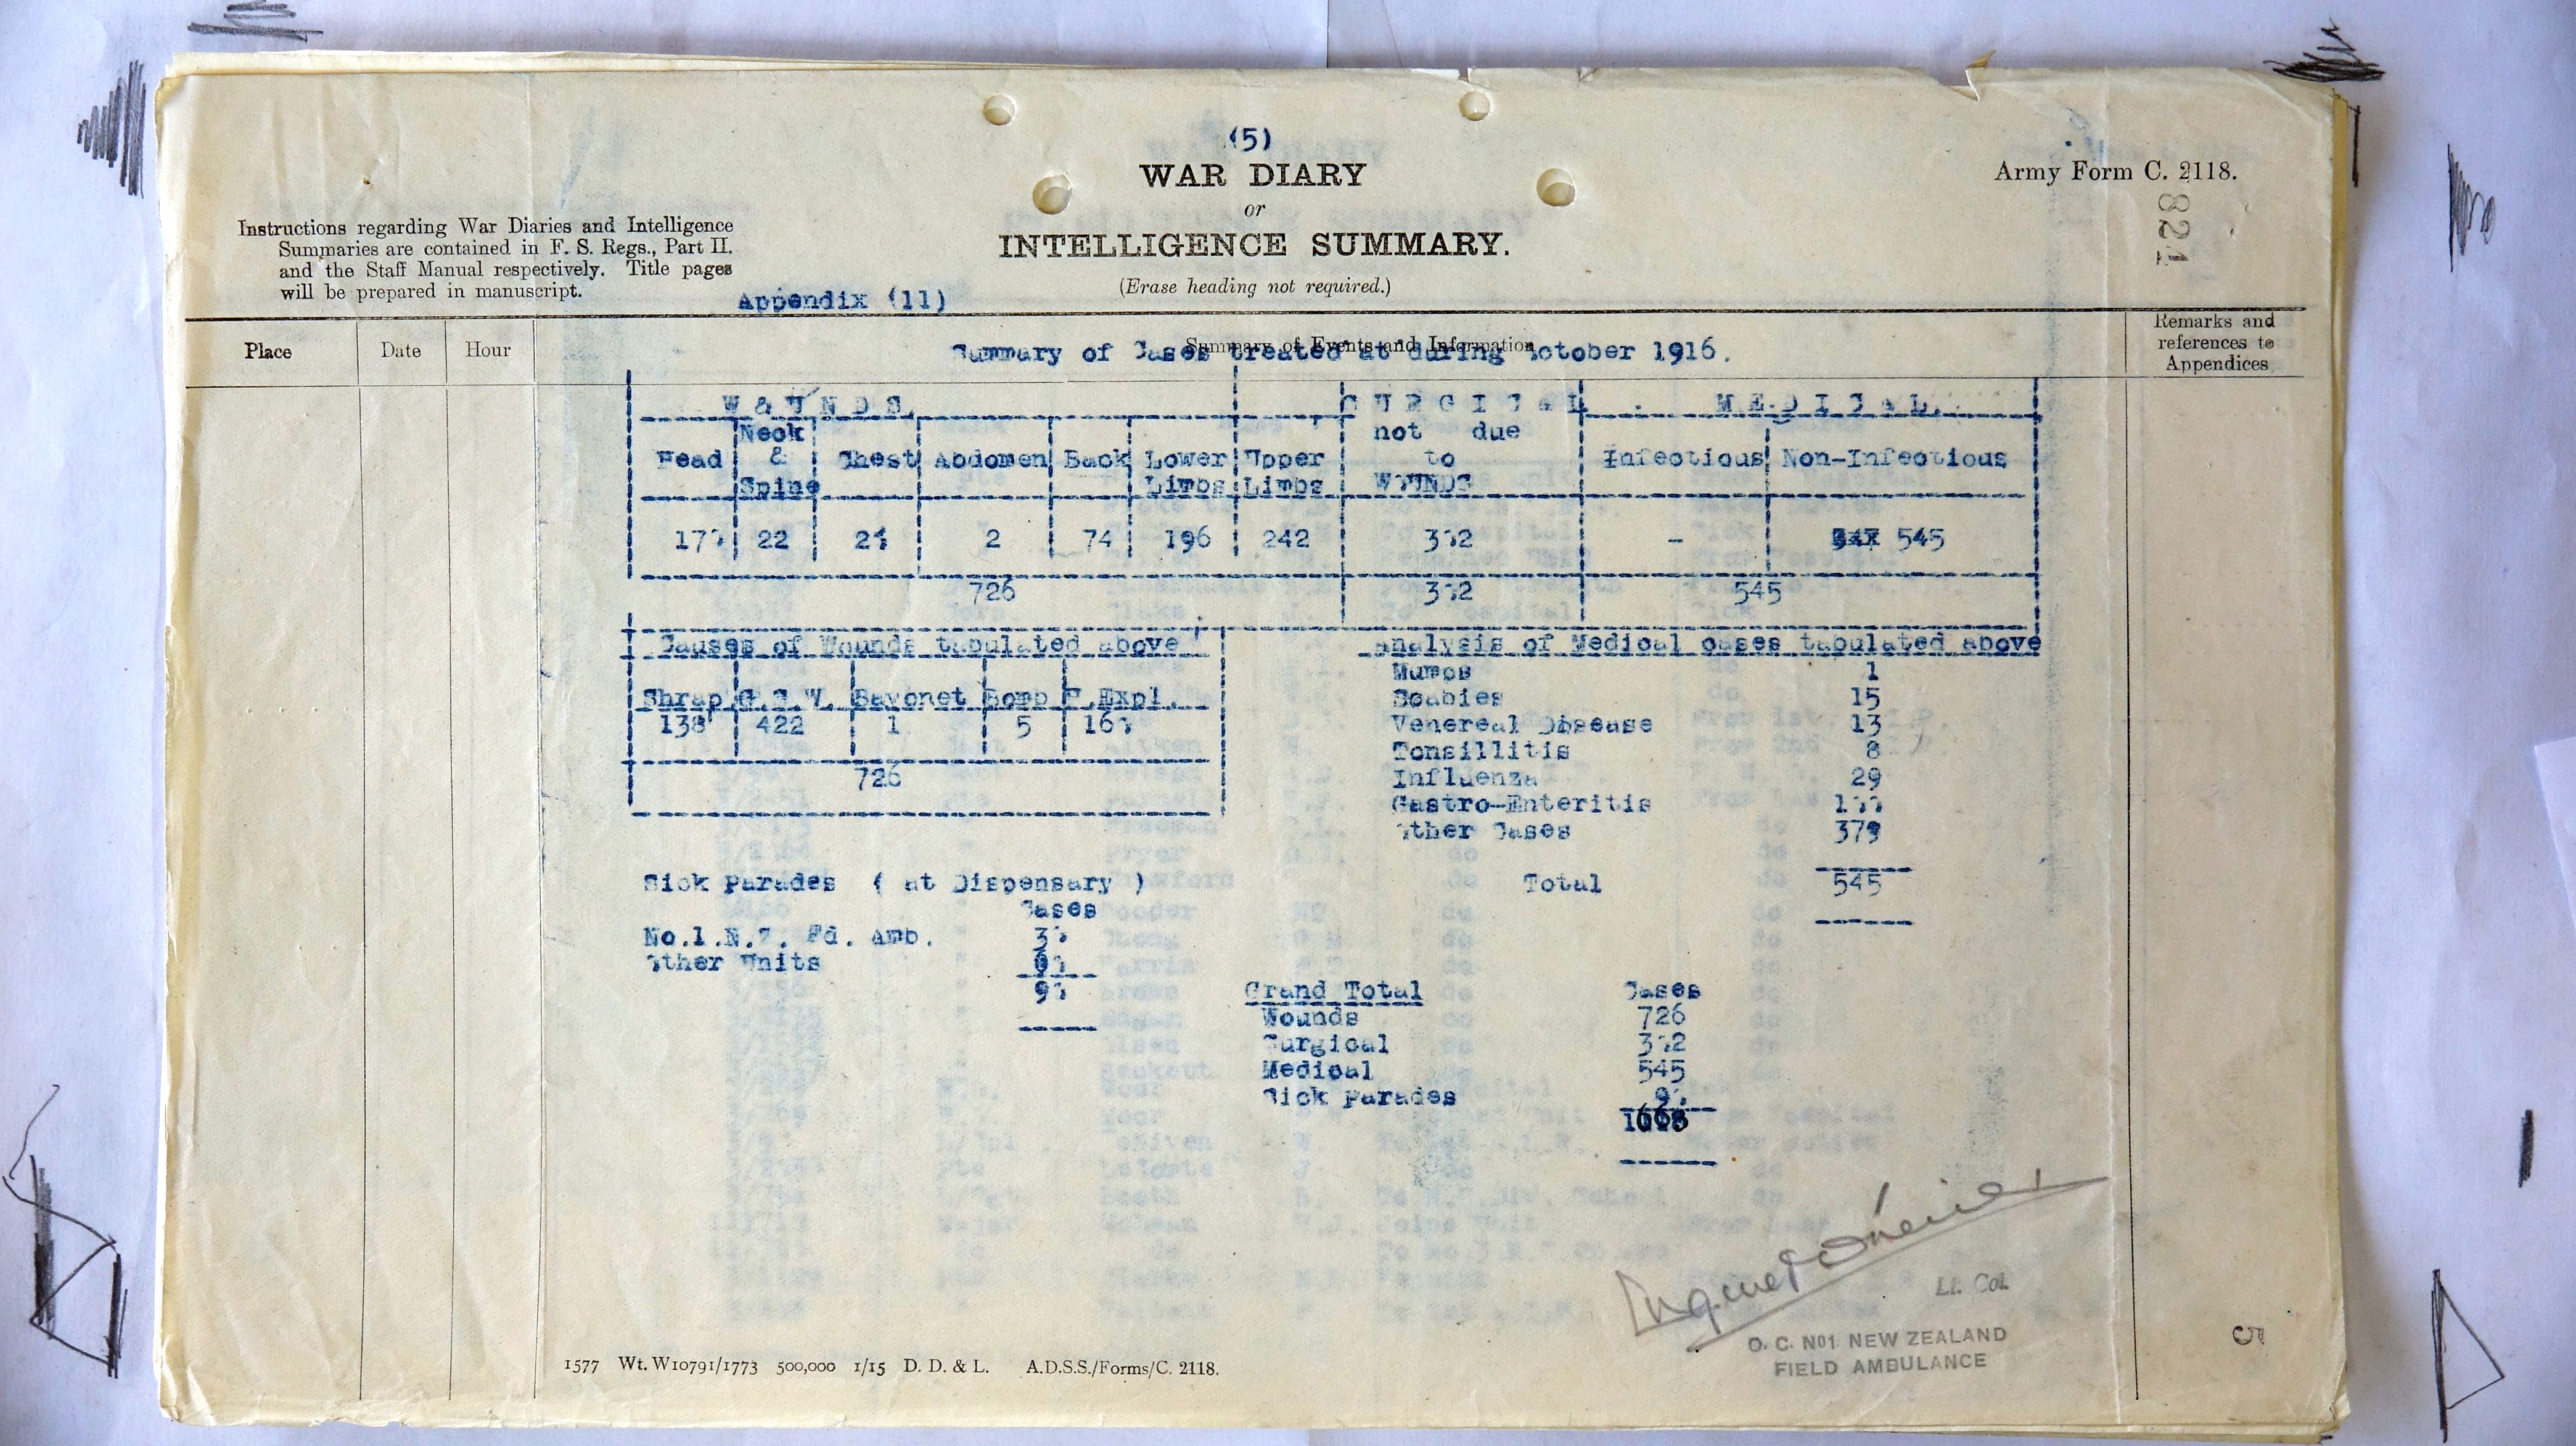 (5)
WAR DIARY
or
INTELLIGENCE SUMMARY.
(Erase heading not required.)
Army Form C. 2118.
821
Instructions regarding War Diaries and Intelligence
Summaries are contained in F. S. Regs., Part II.
and the Staff Manual respectively. Title pages
will be prepared in manuscript.
Appendix (11)
Place Date Hour
Summary of Events and Information
Remarks and
references to
Appendices
Summary of Cases treated at during October 1916.
WOUNDS. SURGICAL MEDICAL.
Neck not due
Head & Chest Abdomen Back Lower Upper to Infectious Non-Infectious
Spine Limbs Limbs WOUNDS
170 22 20 2 74 196 242 302 - 545
726 302 545
Causes of Wounds tabulated above
Shrap G.S.W. Bayonet Bomb H.Expl.
138 422 1 5 160
726
Analysis of Medical cases tabulated above
Mumps 1
Scabies 15
Venereal Disease 13
Tonsillitis 8
Influenza 29
Gastro-Enteritis 100
Other Cases 379
Total 545
Sick Parades ( at Dispensary )
Cases
No.1.N.Z. Fd. Amb. 30
Other Units 60
90
Grand Total Cases
Wounds 726
Surgical 302
Medical 545
Sick Parades 90
Lt. Col.
O. C. No1 NEW ZEALAND
FIELD AMBULANCE
5
1577 Wt. W10791/1773 500,000 1/15 D. D. & L. A.D.S.S./Forms/C. 2118.